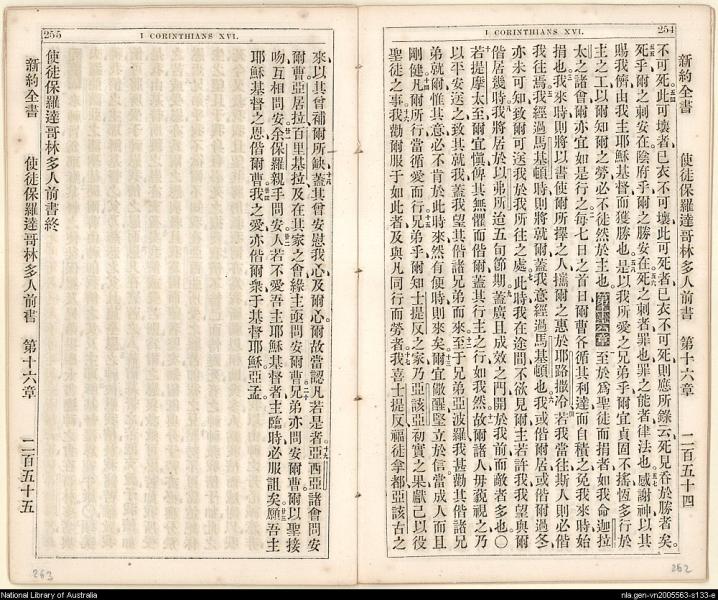 254
I CORINTHIANS XVI.
新約全書 使徒保羅達哥林多人前書 第十六章 二百五十四
不可死此可壞者已衣不可壞此可死者已衣不可死則應所錄云死見吞於勝者矣
死乎爾之刺安在陰府乎爾之勝安在死之刺者罪也罪之能者律法也感謝神以其
賜我儕由我主耶穌基督而獲勝也是以我所愛之兄弟乎爾宜貞固不搖恆多行於
主之工以爾知爾之勞必不徒然於主也第十六章至於爲聖徒而捐者如我命迦拉
太之諸會爾亦宜如是行之每七日之首日爾曹各循其利達而自積之免我來時始
捐也我來時則將以書使爾所擇之人攜爾之惠於耶路撒冷若我當往斯人則必偕
我往焉我經過馬基頓時則將就爾蓋我意經過馬基頓也我或偕爾居或偕爾過冬
亦未可知致爾可送我於我所往之處此時我在途間不欲見爾主若許我我望與爾
偕居幾時我將居於以弗所迨五旬節期蓋廣且成效之門開於我前而敵者多也〇
若提摩太至爾宜愼俾其無懼而偕爾蓋其行主之行如我然故爾諸人毋藐視之乃
以平安送之致其就我蓋我望其偕諸兄弟而來至于兄弟亞波羅我甚勸其偕諸兄
弟就爾惟其意必不肯於此時來然有便時則來矣爾宜儆醒堅立於信當成人而且
剛健凡爾所行當循愛而行兄弟乎爾知士提反之家乃亞該亞初實之果獻己以役
聖徒之事我勸爾服于如此者及與凡同行而勞者我喜士提反福徒拿都亞該古之
262
255
I CORINTHIANS XVI.
來以其曾補爾所缺蓋其曾安慰我心及爾心爾故當認凡若是者亞西亞諸會問安
爾曹亞居拉百里基拉及在其家之會緣主亟問安爾曹兄弟亦問安爾曹爾以聖接
吻互相問安余保羅親手問安人若不愛吾主耶穌基督者主臨時必服詛矣願吾主
耶穌基督之恩偕爾曹我之愛亦偕爾衆于基督耶穌亞孟
使徒保羅達哥林多人前書終
新約全書 使徒保羅達哥林多人前書 第十六章 二百五十五
263
National Library of Australia
nla.gen-vn2005563-s133-e